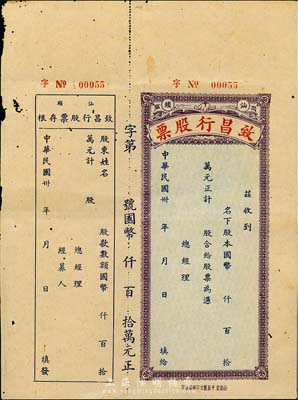 字 № 00055
字 № 00055
汕頭
致昌行股票
茲收到
名下股本國幣 仟 百
萬元正計 股合給股票為憑
總經理
中華民國卅 年 月 日 填給
字第 號國幣 仟 百 拾萬元正
汕頭
致昌行股票存根
股東姓名 股款數額國幣 仟 百 拾
萬元計 股
總經理
經募人
中華民國卅 年 月 日 填發